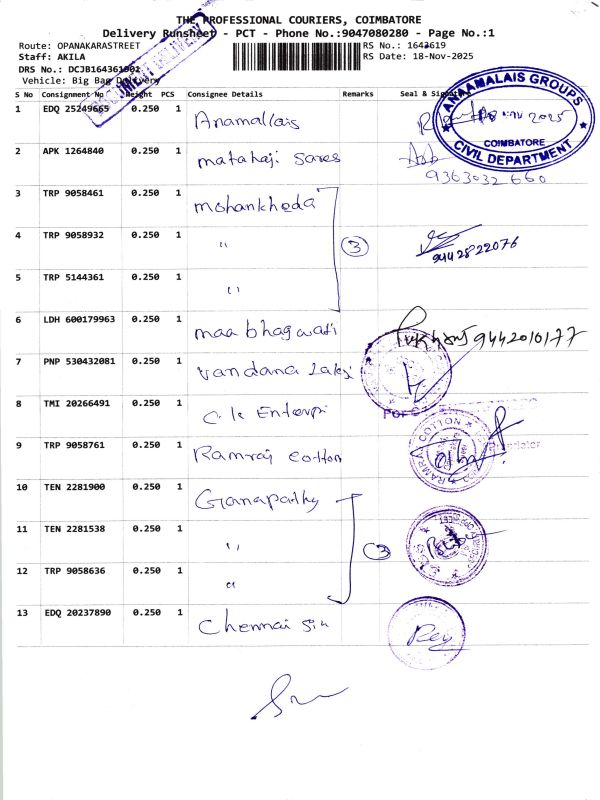 THE PROFESSIONAL COURIERS, COIMBATORE
Delivery Runsheet - PCT - Phone No.:9047080280 - Page No.:1
Route: OPANAKARASTREET
RS No.: 1643619
Staff: AKILA
RS Date: 18-Nov-2025
DRS No.: DCJB164361901
Vehicle: Big Bag Delivery
S No Consignment No Weight PCS Consignee Details Remarks Seal & Signature
1 EDQ 25249665 0.250 1 Anamallais
ANNAMALAIS GROUPS
COIMBATORE
CIVIL DEPARTMENT
2 APK 1264840 0.250 1 matahaji Sares
9363032660
3 TRP 9058461 0.250 1 mohankheda
4 TRP 9058932 0.250 1 " 3
9442822076
5 TRP 5144361 0.250 1 "
6 LDH 600179963 0.250 1 maa bhagwati
9442010177
7 PNP 530432081 0.250 1 vandana
For
8 TMI 20266491 0.250 1 C.k Enterpi
RAMRAJ COTTON
9 TRP 9058761 0.250 1 Ramraj cotton
10 TEN 2281900 0.250 1 Ganapathy
11 TEN 2281538 0.250 1 " 3
12 TRP 9058636 0.250 1 "
13 EDQ 20237890 0.250 1 Chennai Sin